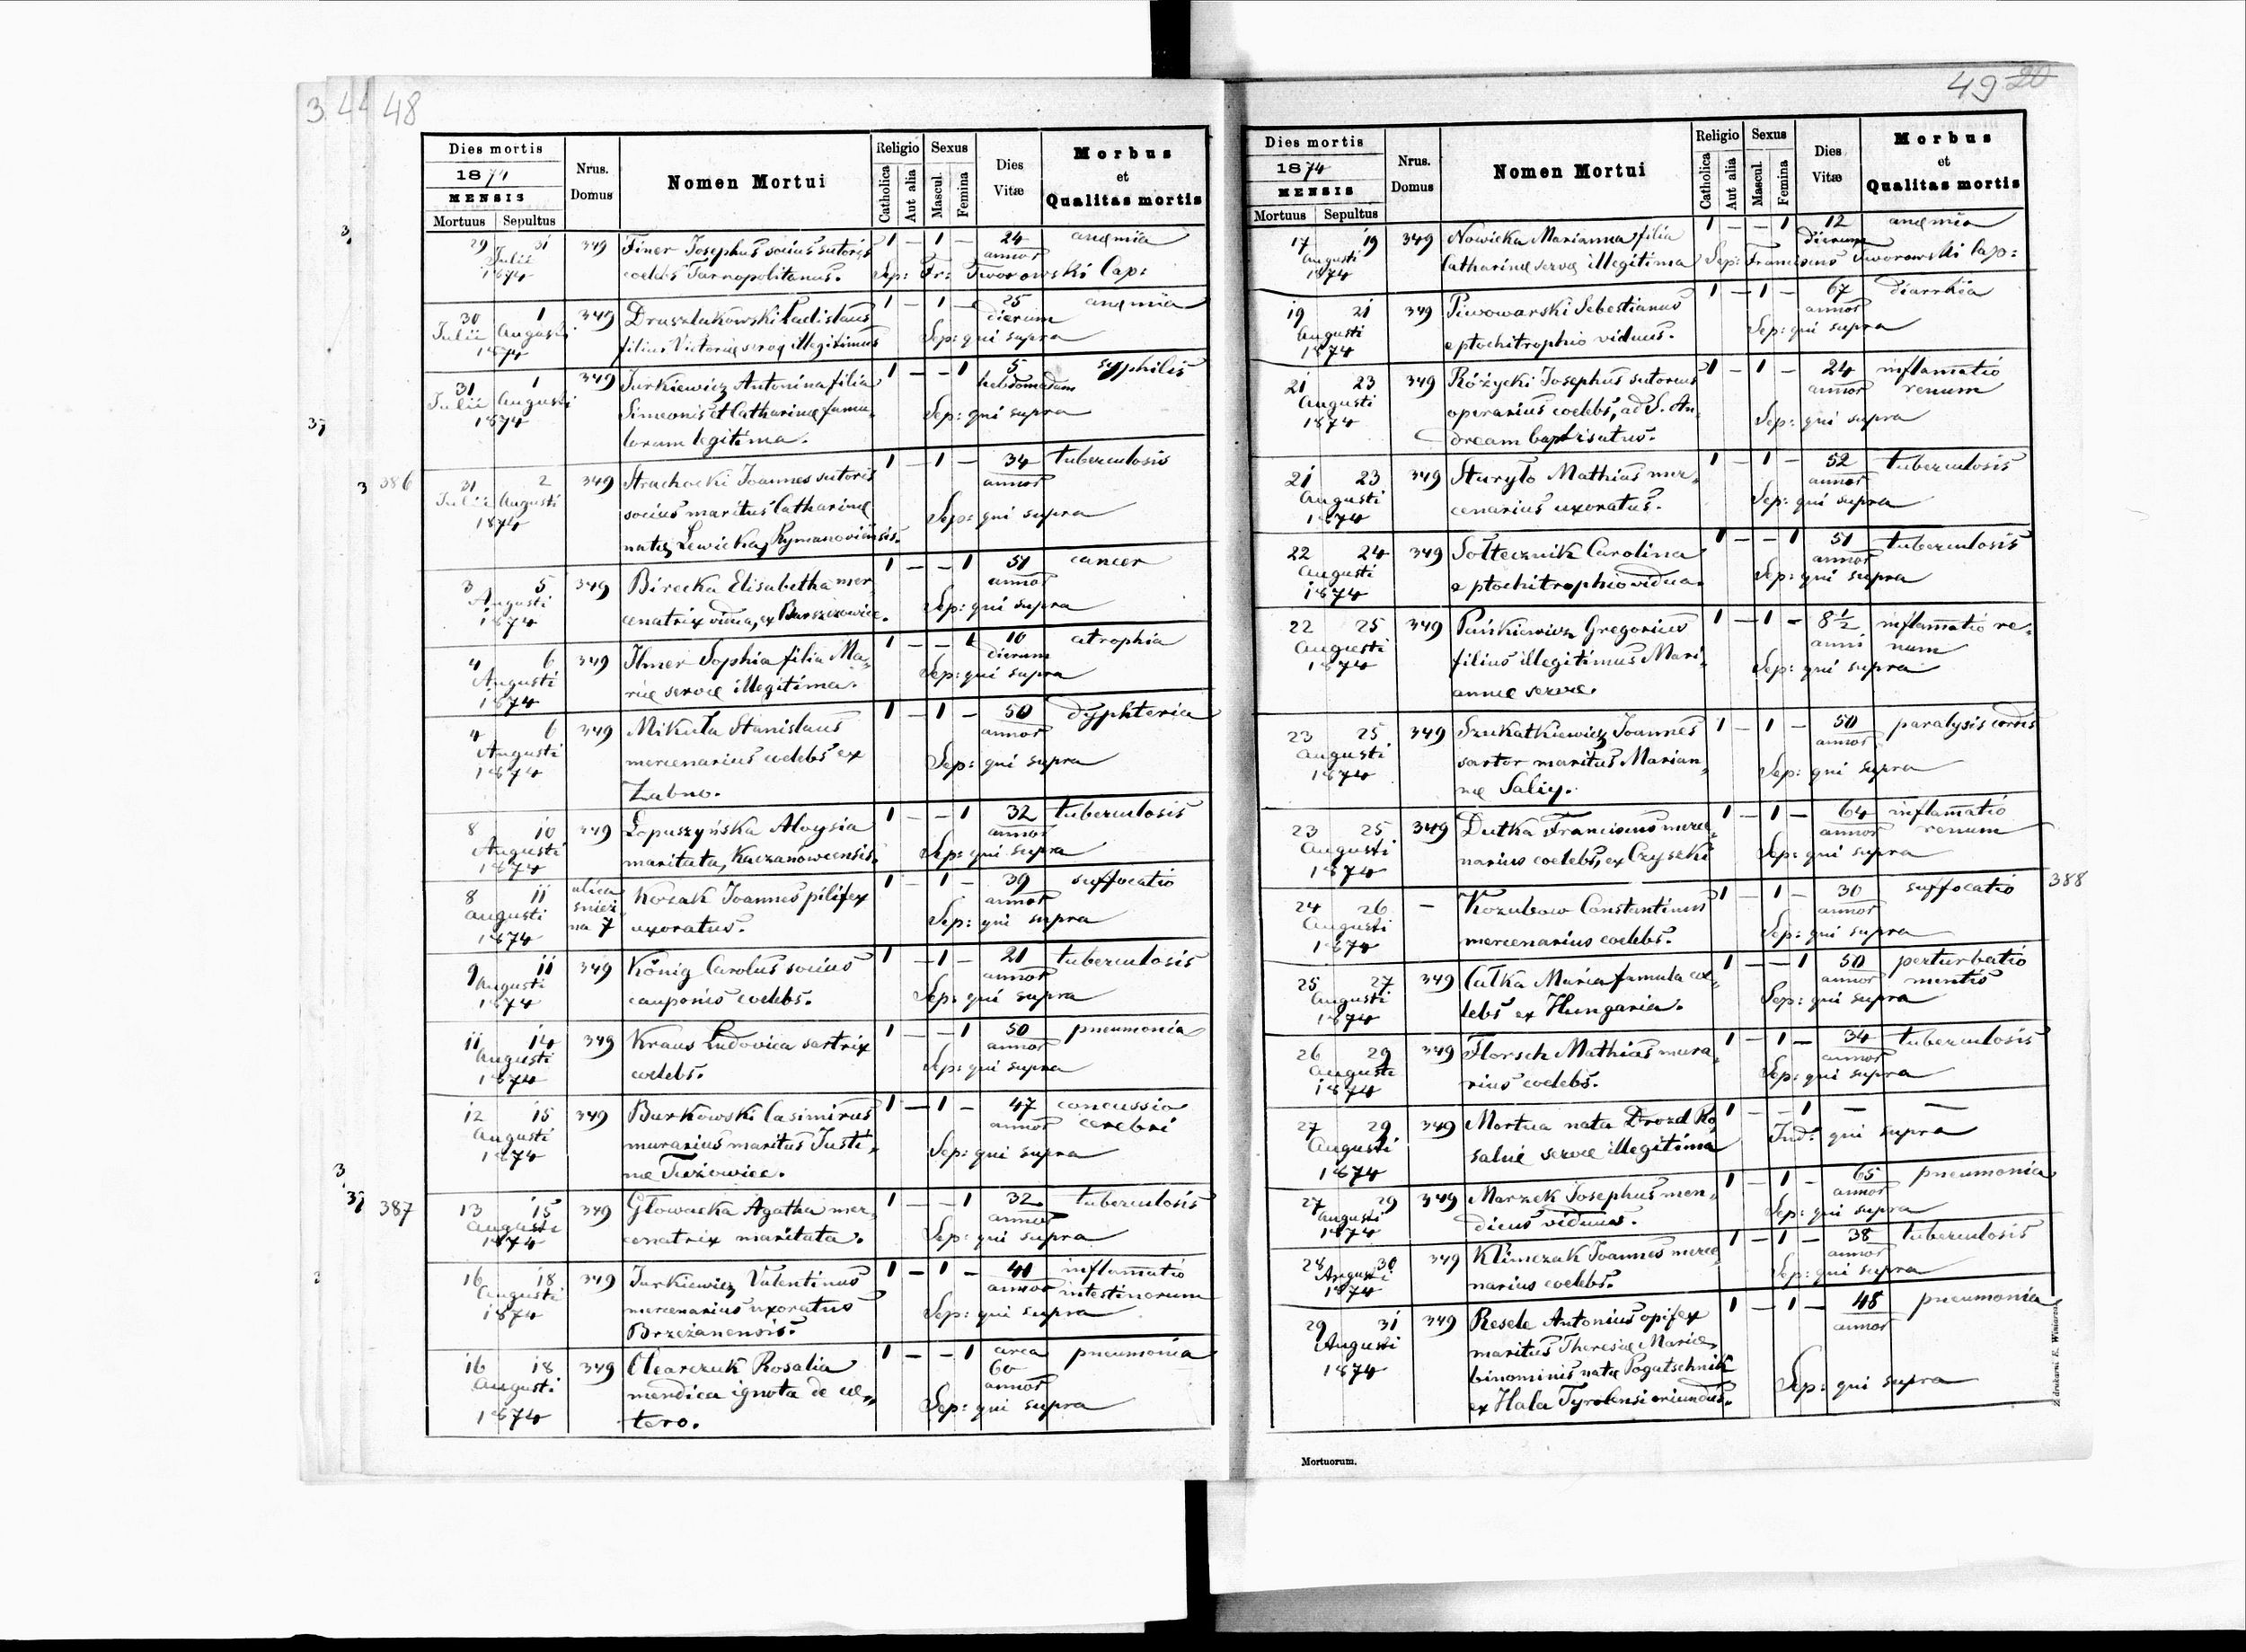 3 44 48
Dies mortis
1874
MENSIS
Mortuus Sepultus
Nrus. Domus
Nomen Mortui
Religio Sexus
Catholica Aut alia Mascul. Femina
Dies Vitæ
Morbus et Qualitas mortis
29 31 349 Finer Josephus socius sutoris 1 — 1 — 24 anęmia
Julii annor
1874 coelebs Tarnopolitanus. Sep: Fr: Tworowski Cap:
30 1 349 Druszlakowski Ladislaus 1 — 1 — 25 anęmia
Julii Augusti dierum
1874 filius Victorię servę illegitimus Sep: qui supra
31 1 349 Jurkiewicz Antonina filia 1 — — 1 5 syphilis
Julii Augusti Simeonis et Catharinę famu- hebdomadum
1874 Sep: qui supra
lorum legitima.
386 31 2 349 Strachocki Joannes sutoris 1 — 1 — 34 tuberculosis
Julii Augusti socius maritus Catharinę annor
1874 Sep: qui supra
natę Lewicka, Rymanoviensis.
3 5 349 Birecka Elisabetha mer- 1 — — 1 51 cancer
Augusti annor
1874 cenatrix vidua, ex Barszczowice. Sep: qui supra
4 6 349 Ilmer Sophia filia Ma- 1 — — 1 10 atrophia
Augusti dierum
1874 rię servę illegitima. Sep: qui supra
4 6 349 Mikuła Stanislaus 1 — 1 — 50 dyphteria
Augusti mercenarius coelebs ex annor
1874 Sep: qui supra
Żabno.
8 10 349 Łopuszyńska Aloysia 1 — — 1 32 tuberculosis
Augusti annor
1874 maritata, Kaczanoweensis. Sep: qui supra
8 11 ulica śnież na 7 Kozak Joannes pilifex 1 — 1 — 39 suffocatio
Augusti annor
1874 uxoratus. Sep: qui supra
9 11 349 König Carolus socius 1 — 1 — 21 tuberculosis
Augusti annor
1874 cauponis coelebs. Sep: qui supra
11 14 349 Kraus Ludovica sartrix 1 — — 1 50 pneumonia
Augusti annor
1874 coelebs. Sep: qui supra
12 15 349 Burkowski Casimirus 1 — 1 — 47 concussio
Augusti murarius maritus Justi- annor cerebri
1874 Sep: qui supra
nę Tużowicz.
387 13 15 349 Głowacka Agatha mer- 1 — — 1 32 tuberculosis
Augusti annor
1874 cenatrix maritata. Sep: qui supra
16 18 349 Jurkiewicz Valentinus 1 — 1 — 41 inflamatio
Augusti mercenarius uxoratus annor intestinorum
1874 Sep: qui supra
Brzeżanensis.
16 18 349 Olearczuk Rosalia 1 — — 1 circa 60 annor pneumonia
Augusti mendica ignota de ce-
1874 Sep: qui supra
tero.
49 20
Dies mortis
1874
MENSIS
Mortuus Sepultus
Nrus. Domus
Nomen Mortui
Religio Sexus
Catholica Aut alia Mascul. Femina
Dies Vitæ
Morbus et Qualitas mortis
17 19 349 Nowicka Marianna filia 1 — — 1 12 anęmia
Augusti dierum
1874 Catharinę servę illegitima Sep: Franciscus Tworowski Cap:
19 21 349 Piwowarski Sebestianus 1 — 1 — 67 diarrhea
Augusti annor
1874 e ptochitrophio viduus. Sep: qui supra
21 23 349 Różycki Josephus sutorius 1 — 1 — 24 inflamatio
Augusti operarius coelebs, ad S. An- annor renum
1874 Sep: qui supra
dream baptisatus.
21 23 349 Staryło Mathias mer- 1 — 1 — 52 tuberculosis
Augusti annor
1874 cenarius uxoratus. Sep: qui supra
22 24 349 Sołtecznik Carolina 1 — — 1 51 tuberculosis
Augusti annor
1874 e ptochitrophio vidua. Sep: qui supra
22 25 349 Pańkiewicz Gregorius 1 — 1 — 8½ inflamatio re-
Augusti filius illegitimus Mari- anni num
1874 Sep: qui supra
annę servę.
23 25 349 Szukatkiewicz Joannes 1 — 1 — 50 paralysis cordis
Augusti sartor maritus Marian- annor
1874 Sep: qui supra
nę Saliy.
23 25 349 Dutka Franciscus merce- 1 — 1 — 64 inflamatio
Augusti annor renum
1874 narius coelebs, ex Czyszki Sep: qui supra
24 26 — Kozubow Constantinus 1 — 1 — 30 suffocatio 388
Augusti annor
1874 mercenarius coelebs. Sep: qui supra
25 27 349 Całka Maria famula coe- 1 — — 1 50 perturbatio
Augusti annor mentis
1874 lebs ex Hungaria. Sep: qui supra
26 29 349 Florsch Mathias mura- 1 — 1 — 34 tuberculosis
Augusti annor
1874 rius coelebs. Sep: qui supra
27 29 349 Mortua nata Drozd Ro- 1 — — 1 — —
Augusti Ind: qui supra
1874 salię servę illegitima
27 29 349 Marzek Josephus men- 1 — 1 — 65 pneumonia
Augusti annor
1874 dicus viduus. Sep: qui supra
28 30 349 Klimczak Joannes merce- 1 — 1 — 38 tuberculosis
Augusti annor
1874 narius coelebs. Sep: qui supra
29 31 349 Resele Antonius opifex 1 — 1 — 48 pneumonia
Augusti maritus Theresię Marię annor
1874 binominis natę Pogatschnik
Sep: qui supra
ex Hala Tyrolensi oriundus.
Z drukarni E. Winiarza.
Mortuorum.